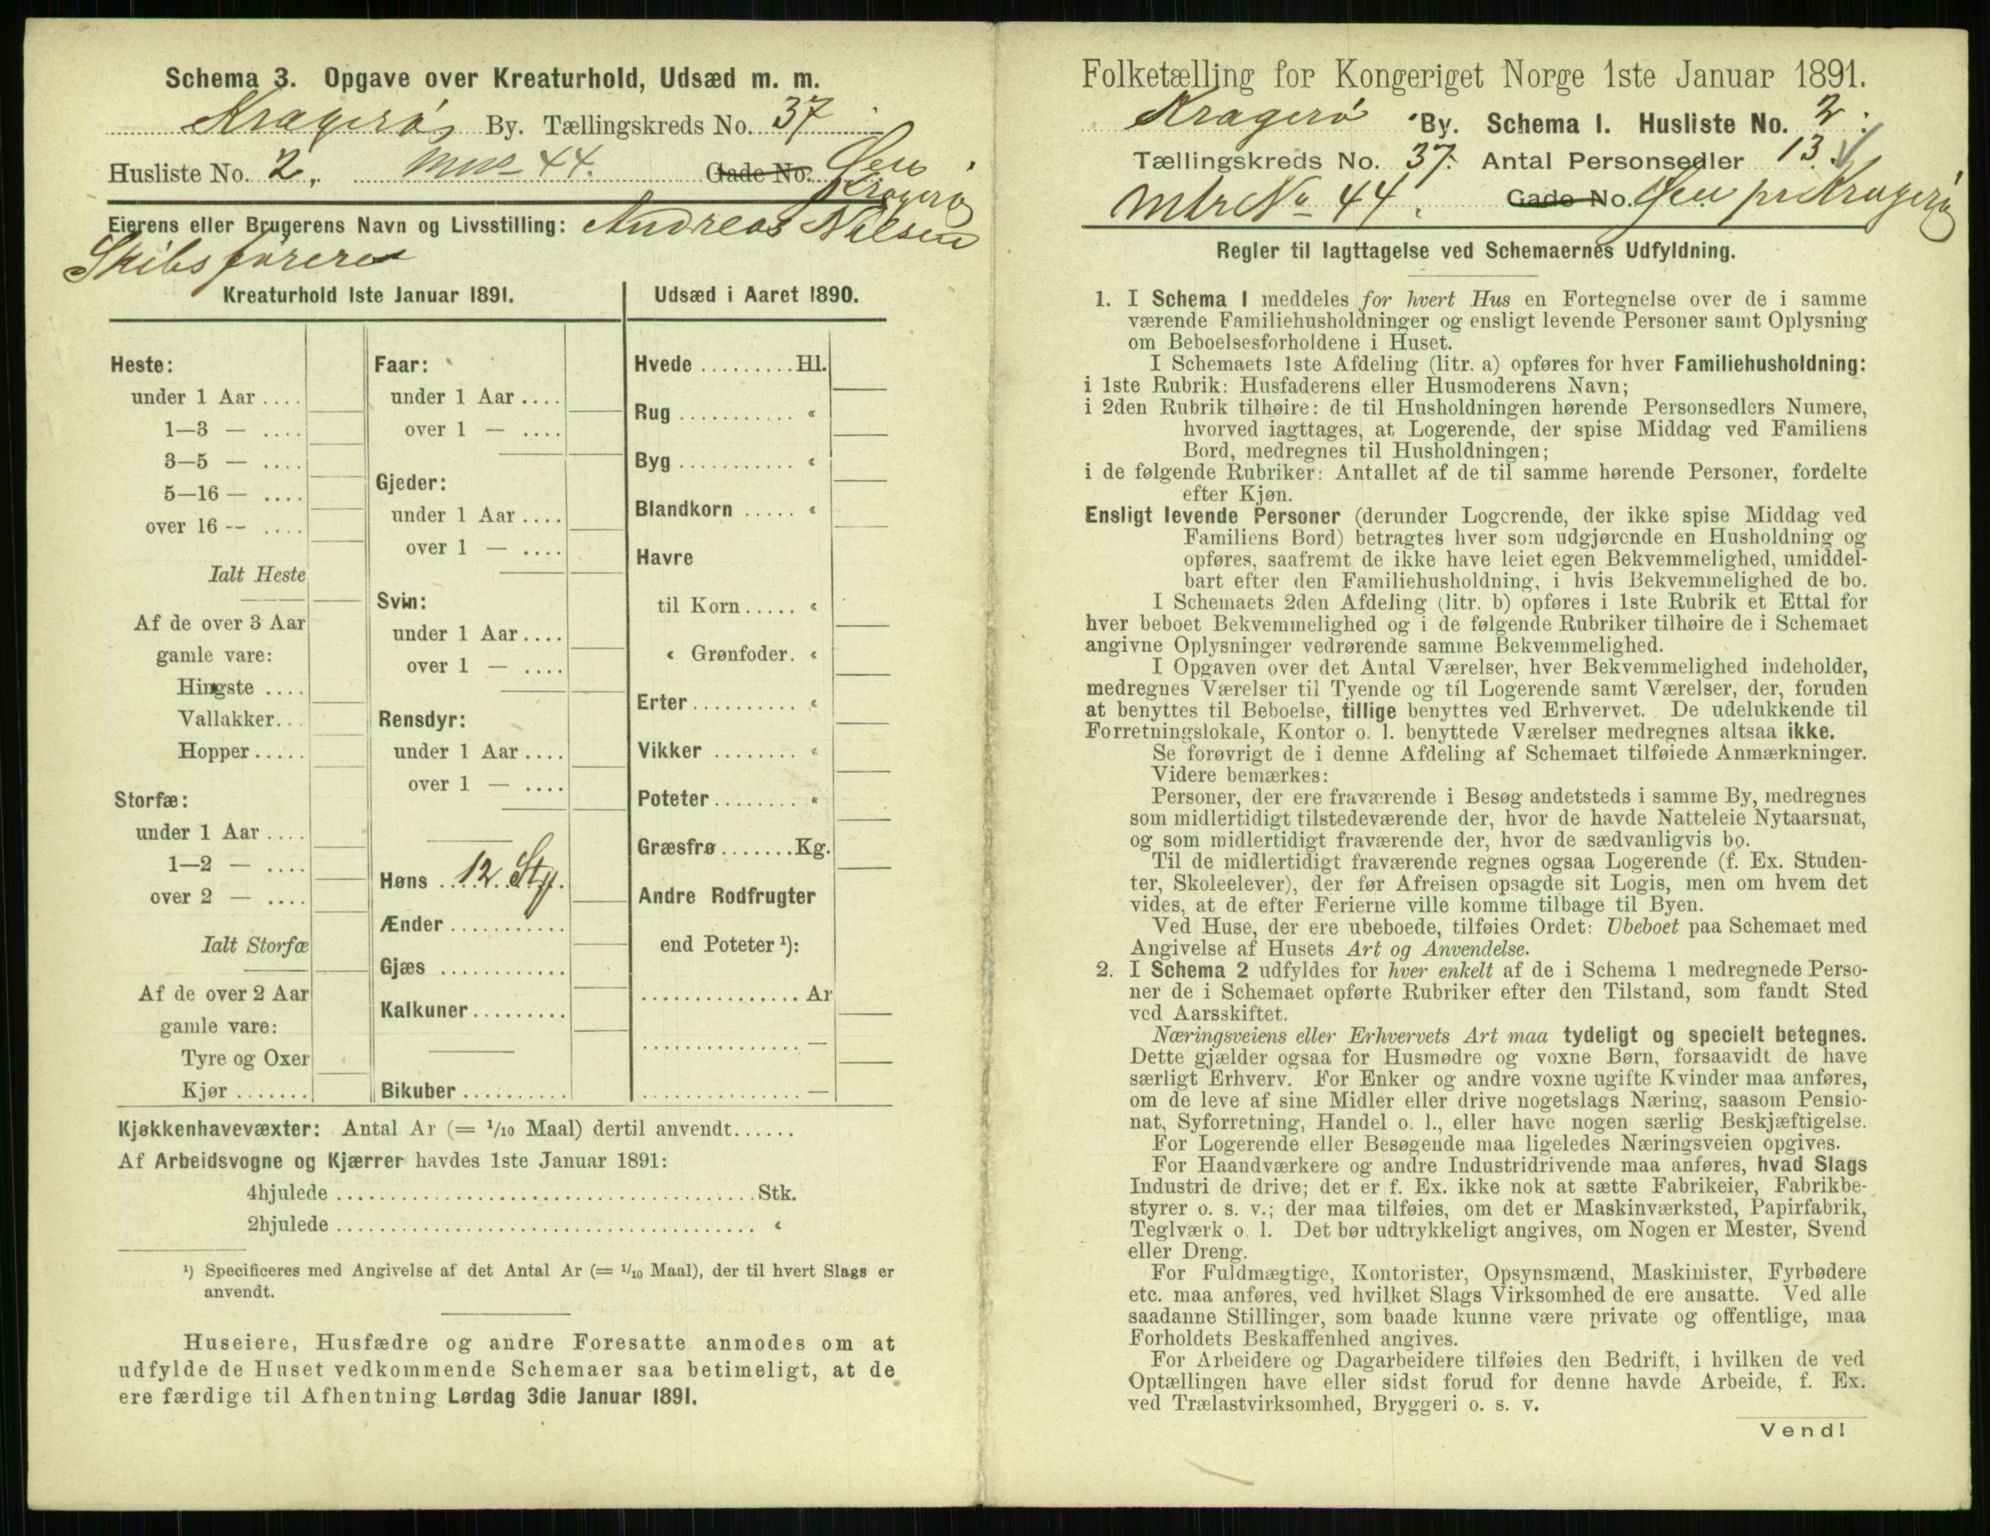 Schema 3. Opgave over Kreaturhold, Udsæd m. m.
Kragerø By. Tællingskreds No. 37
Husliste No. 2, 44. Gade No. Øen
Kragerø
Eierens eller Brugerens Navn og Livsstilling: Andreas Nilsen
Skibsfører
Kreaturhold 1ste Januar 1891.
Heste:
under 1 Aar ....
1—3 — ....
3—5 — ....
5—16 — ....
over 16 — ....
Ialt Heste
Af de over 3 Aar
gamle vare:
Hingste ....
Vallakker...
Hopper.....
Storfæ:
under 1 Aar ....
1—2 — ....
over 2 — ....
Ialt Storfæ
Af de over 2 Aar
gamle vare:
Tyre og Oxer
Kjør .......
Faar:
under 1 Aar ....
over 1 — ....
Gjeder:
under 1 Aar ....
over 1 — ....
Svin:
under 1 Aar ....
over 1 — ....
Rensdyr:
under 1 Aar ....
over 1 — ....
Høns ..12 Sty.
Ænder ...........
Gjæs ............
Kalkuner.........
Bikuber ..........
Udsæd i Aaret 1890.
Hvede .........Hl.
Rug ........... «
Byg ........... «
Blandkorn ..... «
Havre
til Korn..... «
« Grønfoder. «
Erter.......... «
Vikker ........ «
Poteter........ «
Græsfrø.......Kg.
Andre Rodfrugter
end Poteter ¹):
...............Ar
............... —
............... —
Kjøkkenhavevæxter: Antal Ar (= 1/10 Maal) dertil anvendt......
Af Arbeidsvogne og Kjærrer havdes 1ste Januar 1891:
4hjulede .......................................Stk.
2hjulede ....................................... «
¹) Specificeres med Angivelse af det Antal Ar (= 1/10 Maal), der til hvert Slags er
anvendt.
Huseiere, Husfædre og andre Foresatte anmodes om at
udfylde de Huset vedkommende Schemaer saa betimeligt, at de
ere færdige til Afhentning Lørdag 3die Januar 1891.
Folketælling for Kongeriget Norge 1ste Januar 1891.
Kragerø By. Schema I. Husliste No. 2.
Tællingskreds No. 37. Antal Personsedler 13
Mtr No 44. Gade No. Øen pr Kragerø
Regler til Iagttagelse ved Schemaernes Udfyldning.
1. I Schema 1 meddeles for hvert Hus en Fortegnelse over de i samme
værende Familiehusholdninger og ensligt levende Personer samt Oplysning
om Beboelsesforholdene i Huset.
I Schemaets 1ste Afdeling (litr. a) opføres for hver Familiehusholdning:
i 1ste Rubrik: Husfaderens eller Husmoderens Navn;
i 2den Rubrik tilhøire: de til Husholdningen hørende Personsedlers Numere,
hvorved iagttages, at Logerende, der spise Middag ved Familiens
Bord, medregnes til Husholdningen;
i de følgende Rubriker: Antallet af de til samme hørende Personer, fordelte
efter Kjøn.
Ensligt levende Personer (derunder Logerende, der ikke spise Middag ved
Familiens Bord) betragtes hver som udgjørende en Husholdning og
opføres, saafremt de ikke have leiet egen Bekvemmelighed, umiddel-
bart efter den Familiehusholdning, i hvis Bekvemmelighed de bo.
I Schemaets 2den Afdeling (litr. b) opføres i 1ste Rubrik et Ettal for
hver beboet Bekvemmelighed og i de følgende Rubriker tilhøire de i Schemaet
angivne Oplysninger vedrørende samme Bekvemmelighed.
I Opgaven over det Antal Værelser, hver Bekvemmelighed indeholder,
medregnes Værelser til Tyende og til Logerende samt Værelser, der, foruden
at benyttes til Beboelse, tillige benyttes ved Erhvervet. De udelukkende til
Forretningslokale, Kontor o. l. benyttede Værelser medregnes altsaa ikke.
Se forøvrigt de i denne Afdeling af Schemaet tilføiede Anmærkninger.
Videre bemærkes:
Personer, der ere fraværende i Besøg andetsteds i samme By, medregnes
som midlertidigt tilstedeværende der, hvor de havde Natteleie Nytaarsnat,
og som midlertidigt fraværende der, hvor de sædvanligvis bo.
Til de midlertidigt fraværende regnes ogsaa Logerende (f. Ex. Studen-
ter, Skoleelever), der før Afreisen opsagde sit Logis, men om hvem det
vides, at de efter Ferierne ville komme tilbage til Byen.
Ved Huse, der ere ubeboede, tilføies Ordet: Ubeboet paa Schemaet med
Angivelse af Husets Art og Anvendelse.
2. I Schema 2 udfyldes for hver enkelt af de i Schema 1 medregnede Perso-
ner de i Schemaet opførte Rubriker efter den Tilstand, som fandt Sted
ved Aarsskiftet.
Næringsveiens eller Erhvervets Art maa tydeligt og specielt betegnes.
Dette gjælder ogsaa for Husmødre og voxne Børn, forsaavidt de have
særligt Erhverv. For Enker og andre voxne ugifte Kvinder maa anføres,
om de leve af sine Midler eller drive nogetslags Næring, saasom Pensio-
nat, Syforretning, Handel o. l., eller have nogen særlig Beskjæftigelse.
For Logerende eller Besøgende maa ligeledes Næringsveien opgives.
For Haandværkere og andre Industridrivende maa anføres, hvad Slags
Industri de drive; det er f. Ex. ikke nok at sætte Fabrikeier, Fabrikbe-
styrer o. s. v.; der maa tilføies, om det er Maskinværksted, Papirfabrik,
Teglværk o. l. Det bør udtrykkeligt angives, om Nogen er Mester, Svend
eller Dreng.
For Fuldmægtige, Kontorister, Opsynsmænd, Maskinister, Fyrbødere
etc. maa anføres, ved hvilket Slags Virksomhed de ere ansatte. Ved alle
saadanne Stillinger, som baade kunne være private og offentlige, maa
Forholdets Beskaffenhed angives.
For Arbeidere og Dagarbeidere tilføies den Bedrift, i hvilken de ved
Optællingen have eller sidst forud for denne havde Arbeide, f. Ex.
ved Trælastvirksomhed, Bryggeri o. s. v.
Vend!